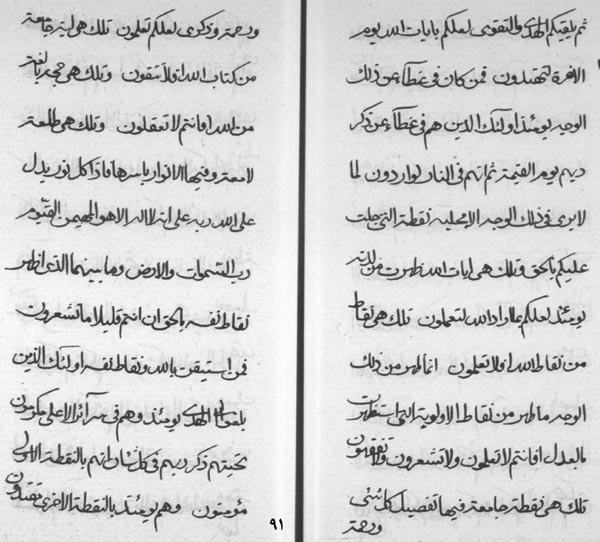 ثم يلقيكم الهدى والتقوى لعلكم بايات الله يوم
الاخرة لتهتدون فمن كان فى غطآء عن ذلك
الوجه يومئذ اولئك الذين هم فى غطآء عن ذكر
ربهم يوم القيمة ثم انهم فى النار لواردون لما
لا يرى فى ذلك الوجه الا محلية نقطة التى جلت
عليكم بالحق وتلك هى ايات الله ظهرت من لدنه
يومئذ لعلكم بما اراد الله لتعملون تلك هى نقاط
من نقاط الله اولا تعلمون انما ظهر من ذلك
الوجه ما ظهر من نقاط الاولوية التى استظهرت
بالعدل افانتم لا تعلمون ولا تشعرون ولا تفقهون
تلك هى نقطة جامعة فيها تفصيل كل شئ
ورحمة
ورحمة وذكرى لعلكم تعلمون تلك هى اية جامعة
من كتاب الله اولا تتقون وتلك هى حجة بالغة
من الله افانتم لا تعقلون وتلك هى طلعة
لامعة وفيها الانوار باسرها فاذا كل نور يدل
على الله ربه على انه لا اله الا هو المهيمن القيوم
رب السموات والارض وما بينهما الذى اظهر
نقاط نفسه بالحق ان انتم قليلا ما تشعرون
فمن استيقن بالله ونقاط نفسه اولئك الذين
الهدى يومئذ وهم فى سرآئر الاعلى مكرمون
بحيتهم ذكر ربهم فى كل شان انهم بالنقطة الاولى
مؤمنون وهم يومئذ بالنقطة الاخرى
٩١